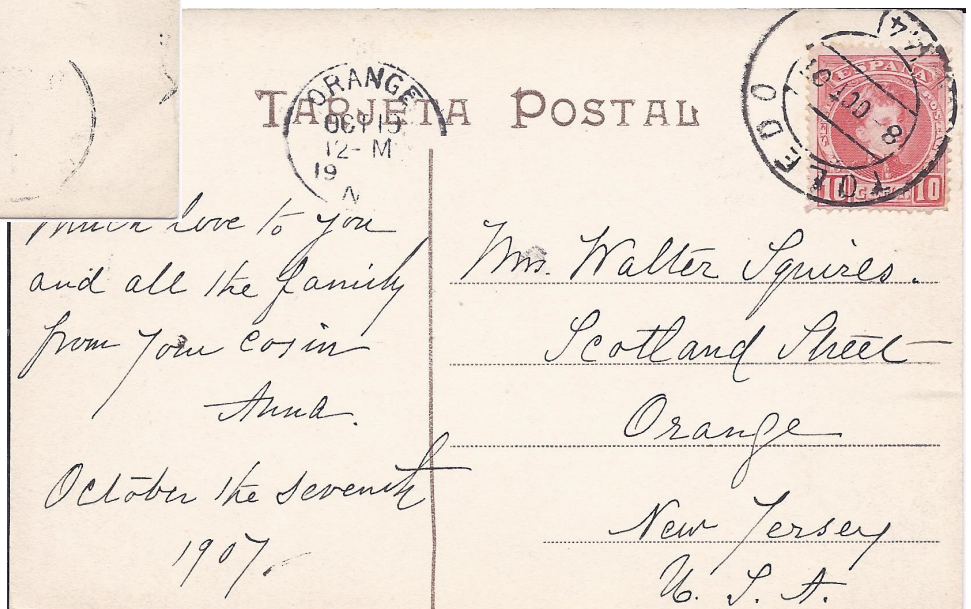 TARJETA POSTAL
ORANGE
OCT 19
12- M
19
N
TOLEDO
8- OCT 0
ESPAÑA
10 10
much love to you
and all the family
from your cosin
Anna.
October the seventh
1907.
Mrs. Walter Squires.
Scotland Street
Orange
New Jersey
U. S. A.